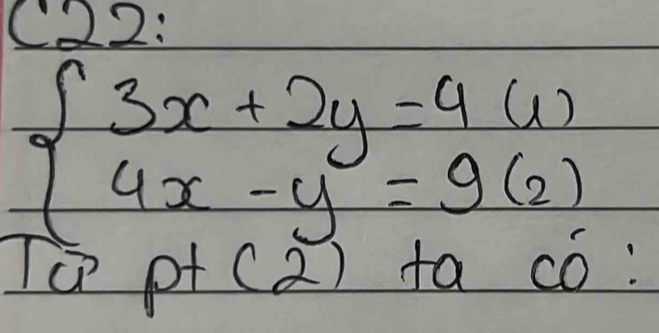 C22:
3x + 2y = 4 (1)
4x - y = 9 (2)
Từ pt (2) ta có: